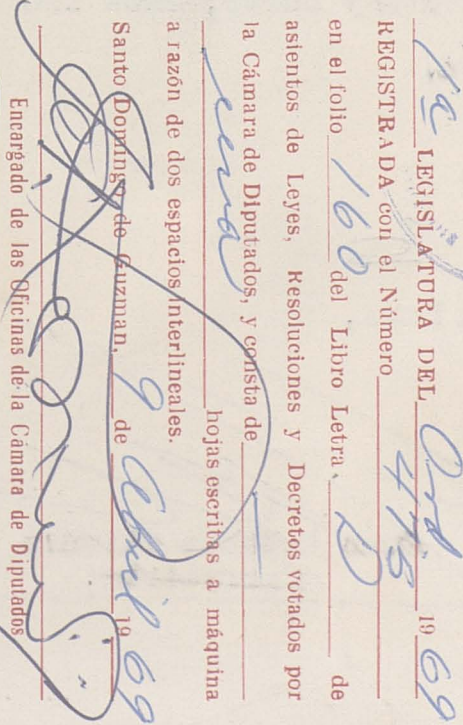 1ª LEGISLATURA DEL Ord 1969
REGISTRADA con el Número 475
en el folio 160 del Libro Letra D de
asientos de Leyes, Resoluciones y Decretos votados por
la Cámara de Diputados, y consta de
hojas escritas a máquina
a razón de dos espacios interlineales.
Santo Domingo de Guzman, 9 de Abril 1969
Encargado de las Oficinas de la Cámara de Diputados